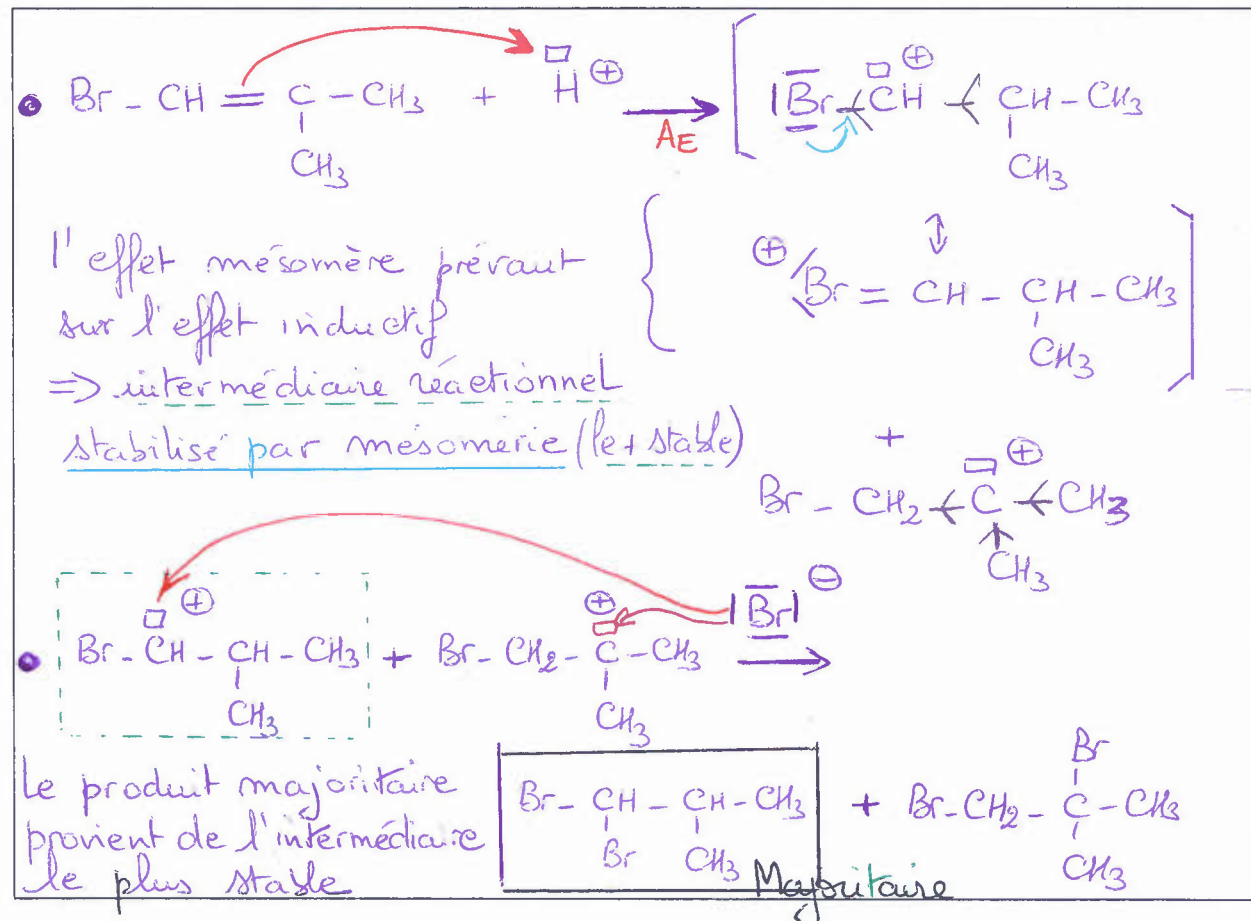 • Br - CH = C - CH3 + H ⊕ → [ |Br - CH ⊕ - CH - CH3
AE
CH3 CH3
l'effet mésomère prévaut
sur l'effet inductif
=> intermédiaire réactionnel
stabilisé par mésomerie (le + stable)
↕
⊕ Br = CH - CH - CH3 ]
CH3
+
Br - CH2 - C ⊕ - CH3
CH3
• Br - CH ⊕ - CH - CH3 + Br - CH2 - C ⊕ - CH3 |Br| ⊖ →
CH3 CH3
Le produit majoritaire
provient de l'intermédiaire
le plus stable
Br - CH - CH - CH3 + Br - CH2 - C - CH3
Br CH3 Br CH3
Majoritaire